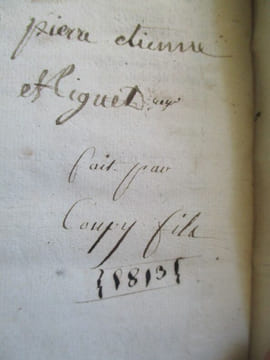 pierre etienne
Miguet
fait par
Coupy fils
{1813}